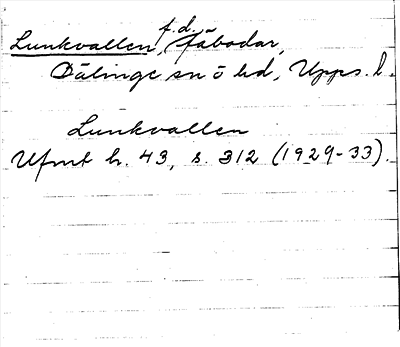 Lunkvallen, f.d. fäbodar,
Bälinge sn o hd, Upps. l.
Lunkvallen
Ufmt h. 43, s. 312 (1929-33).